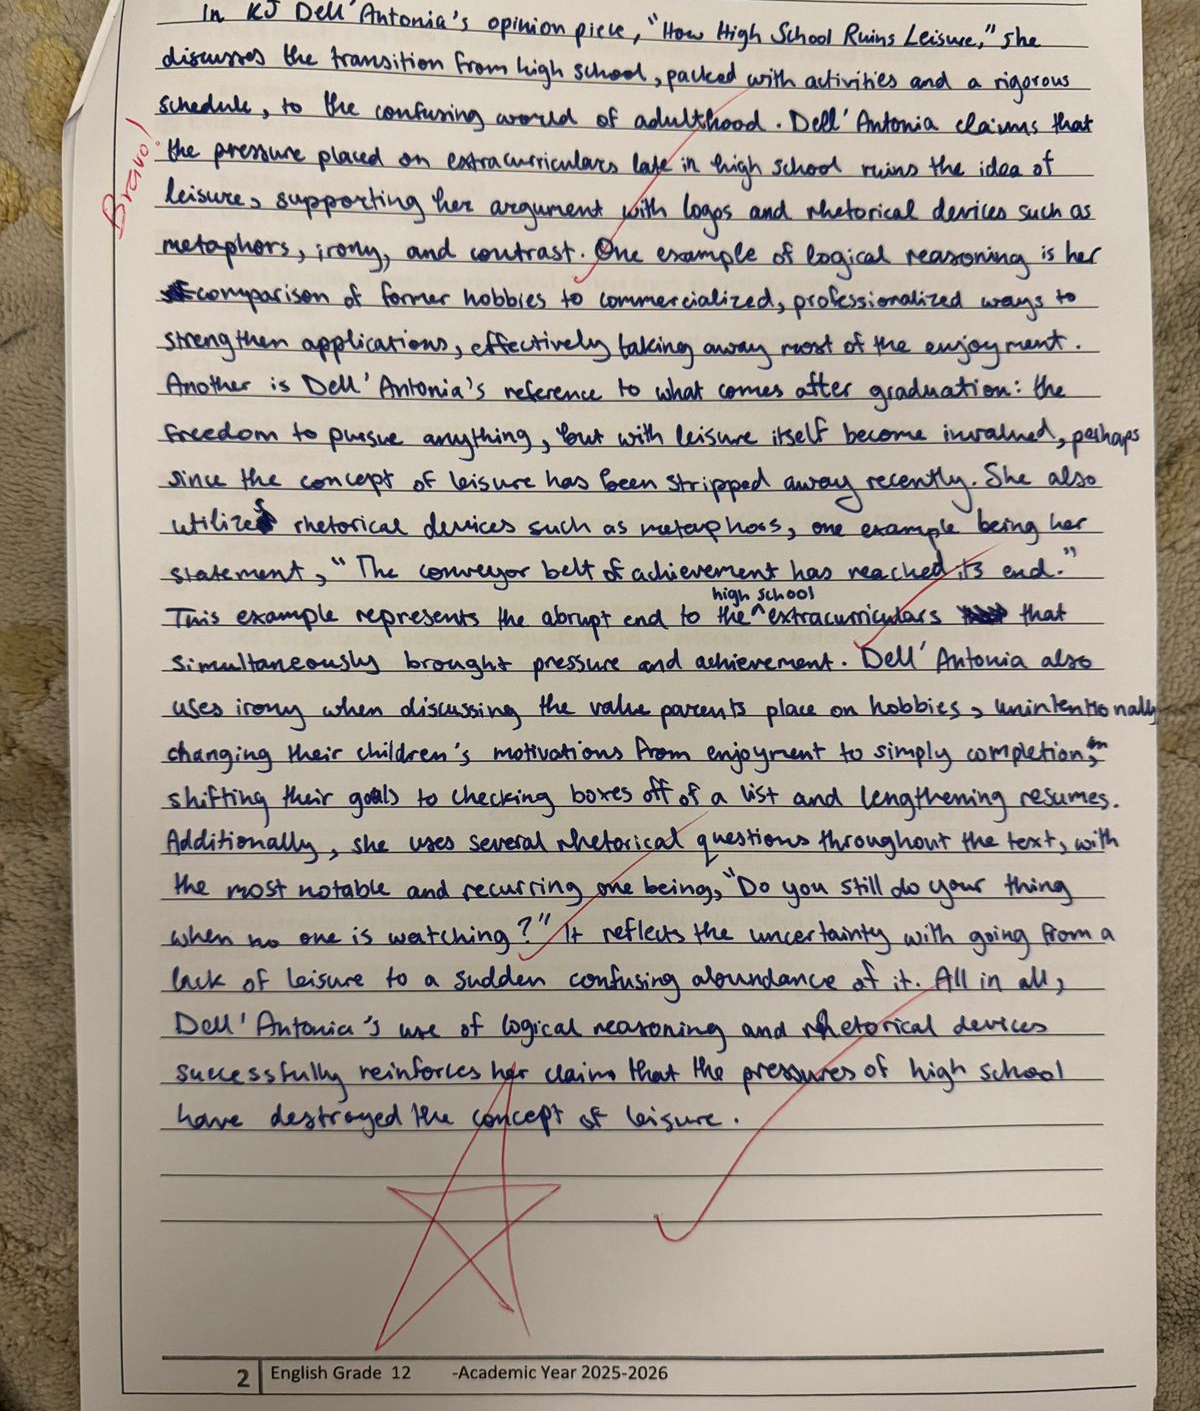 In KJ Dell'Antonia's opinion piece, "How High School Ruins Leisure," she
discusses the transition from high school, packed with activities and a rigorous
schedule, to the confusing world of adulthood. Dell'Antonia claims that
the pressure placed on extracurriculars late in high school ruins the idea of
leisure, supporting her argument with logos and rhetorical devices such as
metaphors, irony, and contrast. One example of logical reasoning is her
comparison of former hobbies to commercialized, professionalized ways to
strengthen applications, effectively taking away most of the enjoyment.
Another is Dell'Antonia's reference to what comes after graduation: the
freedom to pursue anything, but with leisure itself become invalued, perhaps
since the concept of leisure has been stripped away recently. She also
utilizes rhetorical devices such as metaphors, one example being her
statement, "The conveyor belt of achievement has reached its end."
This example represents the abrupt end to the ^ high school extracurriculars that
simultaneously brought pressure and achievement. Dell'Antonia also
uses irony when discussing the value parents place on hobbies, unintentionally
changing their children's motivations from enjoyment to simply completion,
shifting their goals to checking boxes off of a list and lengthening resumes.
Additionally, she uses several rhetorical questions throughout the text, with
the most notable and recurring one being, "Do you still do your thing
when no one is watching?" It reflects the uncertainty with going from a
lack of leisure to a sudden confusing abundance of it. All in all,
Dell'Antonia's use of logical reasoning and rhetorical devices
successfully reinforces her claim that the pressures of high school
have destroyed the concept of leisure.
Bravo!
2 English Grade 12 -Academic Year 2025-2026